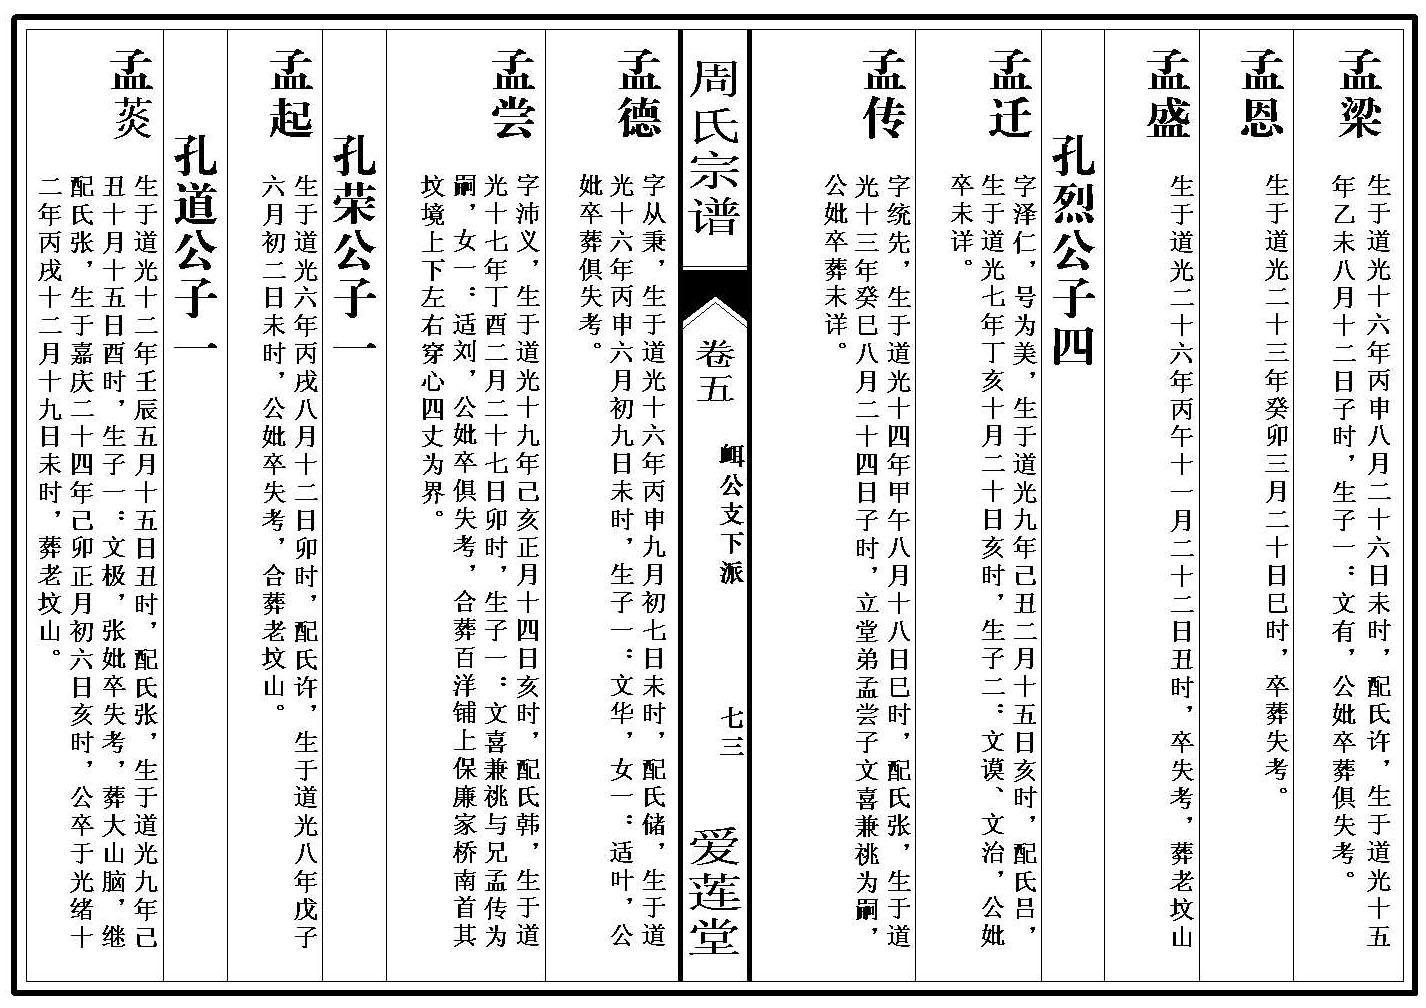 孟梁
生于道光十六年丙申八月二十六日未时，配氏许，生于道光十五
年乙未八月十二日子时，生子一：文有，公妣卒葬俱失考。
孟恩
生于道光二十三年癸卯三月二十日巳时，卒葬失考。
孟盛
生于道光二十六年丙午十一月二十二日丑时，卒失考，葬老坟山
孔烈公子四
孟迁
字泽仁，号为美，生于道光九年己丑二月十五日亥时，配氏吕，
生于道光七年丁亥十月二十日亥时，生子二：文谟、文治，公妣
卒未详。
孟传
字统先，生于道光十四年甲午八月十八日巳时，配氏张，生于道
光十三年癸巳八月二十四日子时，立堂弟孟尝子文喜兼祧为嗣，
公妣卒葬未详。
周氏宗谱
卷五
衈公支下派
七三
爱莲堂
孟德
字从秉，生于道光十六年丙申九月初七日未时，配氏储，生于道
光十六年丙申六月初九日未时，生子一：文华，女一：适叶，公
妣卒葬俱失考。
孟尝
字沛义，生于道光十九年己亥正月十四日亥时，配氏韩，生于道
光十七年丁酉二月二十七日卯时，生子一：文喜兼祧与兄孟传为
嗣，女一：适刘，公妣卒俱失考，合葬百洋铺上保廉家桥南首其
坟境上下左右穿心四丈为界。
孔荣公子一
孟起
生于道光六年丙戌八月十二日卯时，配氏许，生于道光八年戊子
六月初二日未时，公妣卒失考，合葬老坟山。
孔道公子一
孟荬
生于道光十二年壬辰五月十五日丑时，配氏张，生于道光九年己
丑十月十五日酉时，生子一：文极，张妣卒失考，葬大山脑，继
配氏张，生于嘉庆二十四年己卯正月初六日亥时，公卒于光绪十
二年丙戌十二月十九日未时，葬老坟山。